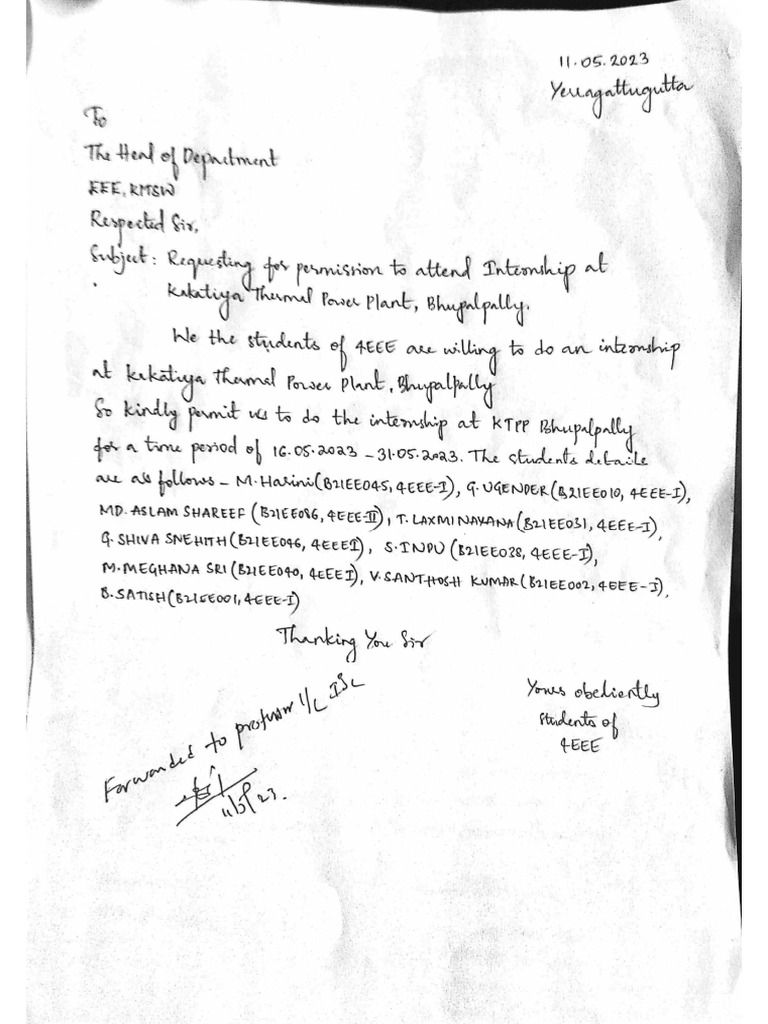 11.05.2023
Yerragattugutta
To
The Head of Department
EEE, KITSW
Respected Sir,
Subject: Requesting for permission to attend Internship at
Kakatiya Thermal Power Plant, Bhupalpally.
We the students of 4EEE are willing to do an internship
at Kakatiya Thermal Power Plant, Bhupalpally
So kindly permit us to do the internship at KTPP Bhupalpally
for a time period of 16.05.2023 - 31.05.2023. The students details
are as follows - M. Harini (B21EE045, 4EEE-I), G. UGENDER (B21EE010, 4EEE-I),
MD. ASLAM SHAREEF (B21EE086, 4EEE-II), T. LAXMI NAYANA (B21EE031, 4EEE-I),
G. SHIVA SNEHITH (B21EE046, 4EEEI), S. INDU (B21EE028, 4EEE-I),
M. MEGHANA SRI (B21EE040, 4EEEI), V. SANTHOSH KUMAR (B21EE002, 4EEE-I),
B. SATISH (B21EE001, 4EEE-I)
Thanking You Sir
Yours obediently
Students of
4EEE
Forwarded to professor I/C
11/5/23.